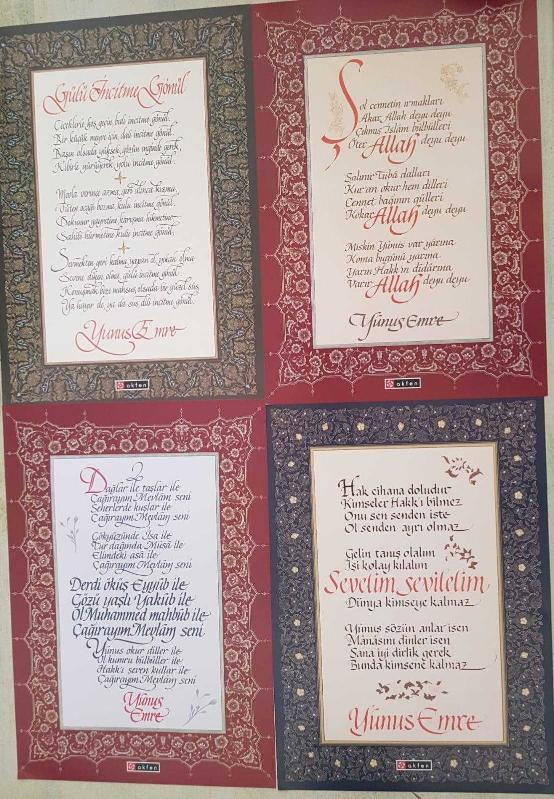 Gülü İncitme Gönül
Çiçeklerle hoş geçin balı incitme gönül.
Bir küçük meyve için, dalı incitme gönül.
Başın olsada yüksek, gözün enginde gerek,
Kibirle yürüyerek, yolu incitme gönül.
Mevla verince azma, geri alınca kızma,
Tüten ocağı bozma, kulu incitme gönül.
Dokunur gayretine, karışma hikmetine,
Sahibi hürmetine kulu incitme gönül.
Sevmekten geri kalma, yapan ol, yıkan olma,
Sevene diken olma, gülü incitme gönül.
Konuşmak bize mahsus, olsada bir güzel süs,
Ya hayır de, ya da sus, dili incitme gönül.
Yunus Emre
akfen
Şol cennetin ırmakları
Akar Allah deyu deyu
Çıkmış İslâm bülbülleri
Öter Allah deyu deyu
Salınır Tûbâ dalları
Kur'an okur hem dilleri
Cennet bağının gülleri
Kokar Allah deyu deyu
Miskin Yûnus var yârına
Koma bugünü yarına
Yarın Hakk'ın dîdârına
Varır Allah deyu deyu
Yûnus Emre
akfen
Dağlar ile taşlar ile
Çağırayım Mevlâm seni
Seherlerde kuşlar ile
Çağırayım Mevlâm seni
Gökyüzünde Îsa ile
Tûr dağında Mûsâ ile
Elindeki asâ ile
Çağırayım Mevlâm seni
Derdi öküş Eyyûb ile
Gözü yaşlı Yakûb ile
Ol Muhammed mahbûb ile
Çağırayım Mevlâm seni
Yûnus okur diller ile
Ol kumru bülbüller ile
Hakk'ı seven kullar ile
Çağırayım Mevlâm seni
Yûnus
Emre
akfen
Hak cihana doludur
Kimseler Hakk'ı bilmez
Onu sen senden iste
Ol senden ayrı olmaz
Gelin tanış olalım
İşi kolay kılalım
Sevelim, sevilelim
Dünya kimseye kalmaz
Yûnus sözün anlar isen
Mânâsını dinler isen
Sana iyi dirlik gerek
Bunda kimsene kalmaz
Yûnus Emre
akfen